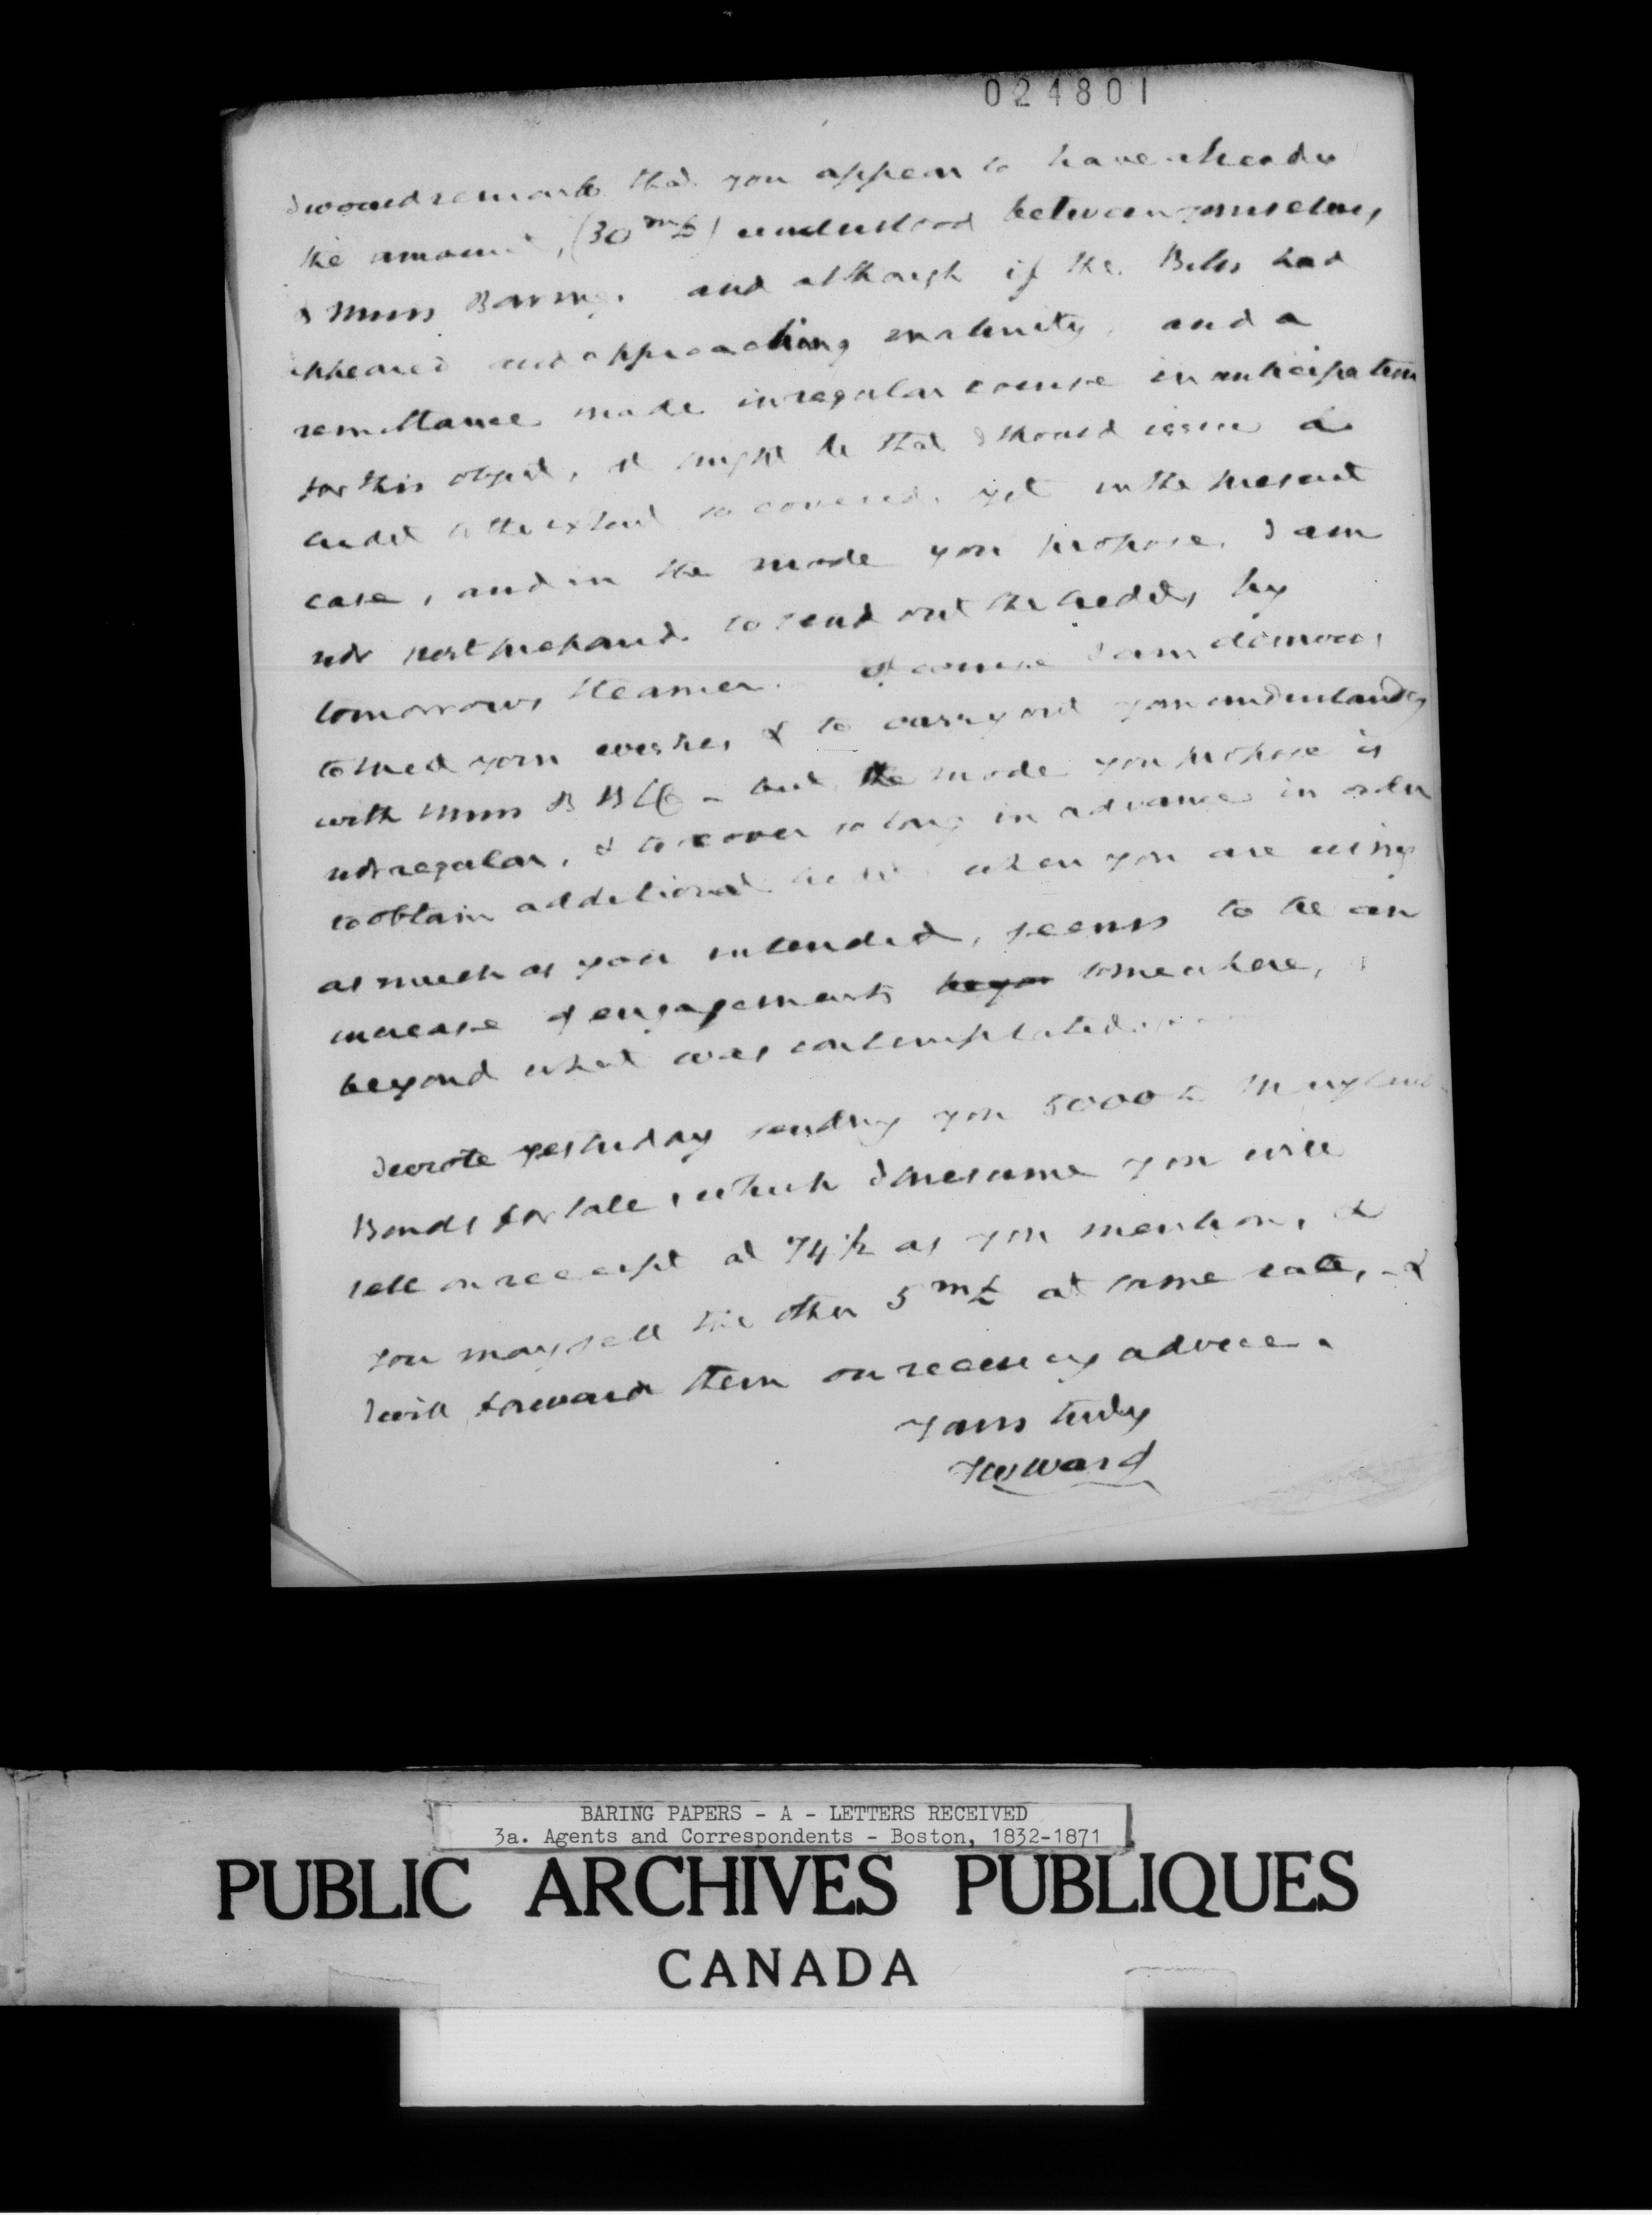 024801
I would remark that you appear to have already
the amount, (30 m£) understood between yourselves
& Messrs Barings. and although if the Bills had
appeared and approaching maturity, and a
remittance made in regular course in anticipation
for this object, it might be that I should issue a
credit to the extent so covered. yet in the present
case, and in the mode you propose, I am
not prepared to send out the credits by
tomorrows steamer. Of course I am desirous
to meet your wishes & to carry out your understanding
with Messrs B B & Co - but the mode you propose is
not regular, & to cover so long in advance in order
to obtain additional credit when you are using
as much as you intended, seems to be an
increase of engagements somewhere,
beyond what was contemplated.
I wrote yesterday sending you 5000 £ Maryland
Bonds for sale, which I presume you will
sell on receipt at 74 1/2 as you mention, &
you may sell the other 5 m£ at same rate, - &
I will forward them on receiving advice.
Yours truly
TW Ward
BARING PAPERS - A - LETTERS RECEIVED
3a. Agents and Correspondents - Boston, 1832-1871
PUBLIC ARCHIVES PUBLIQUES
CANADA